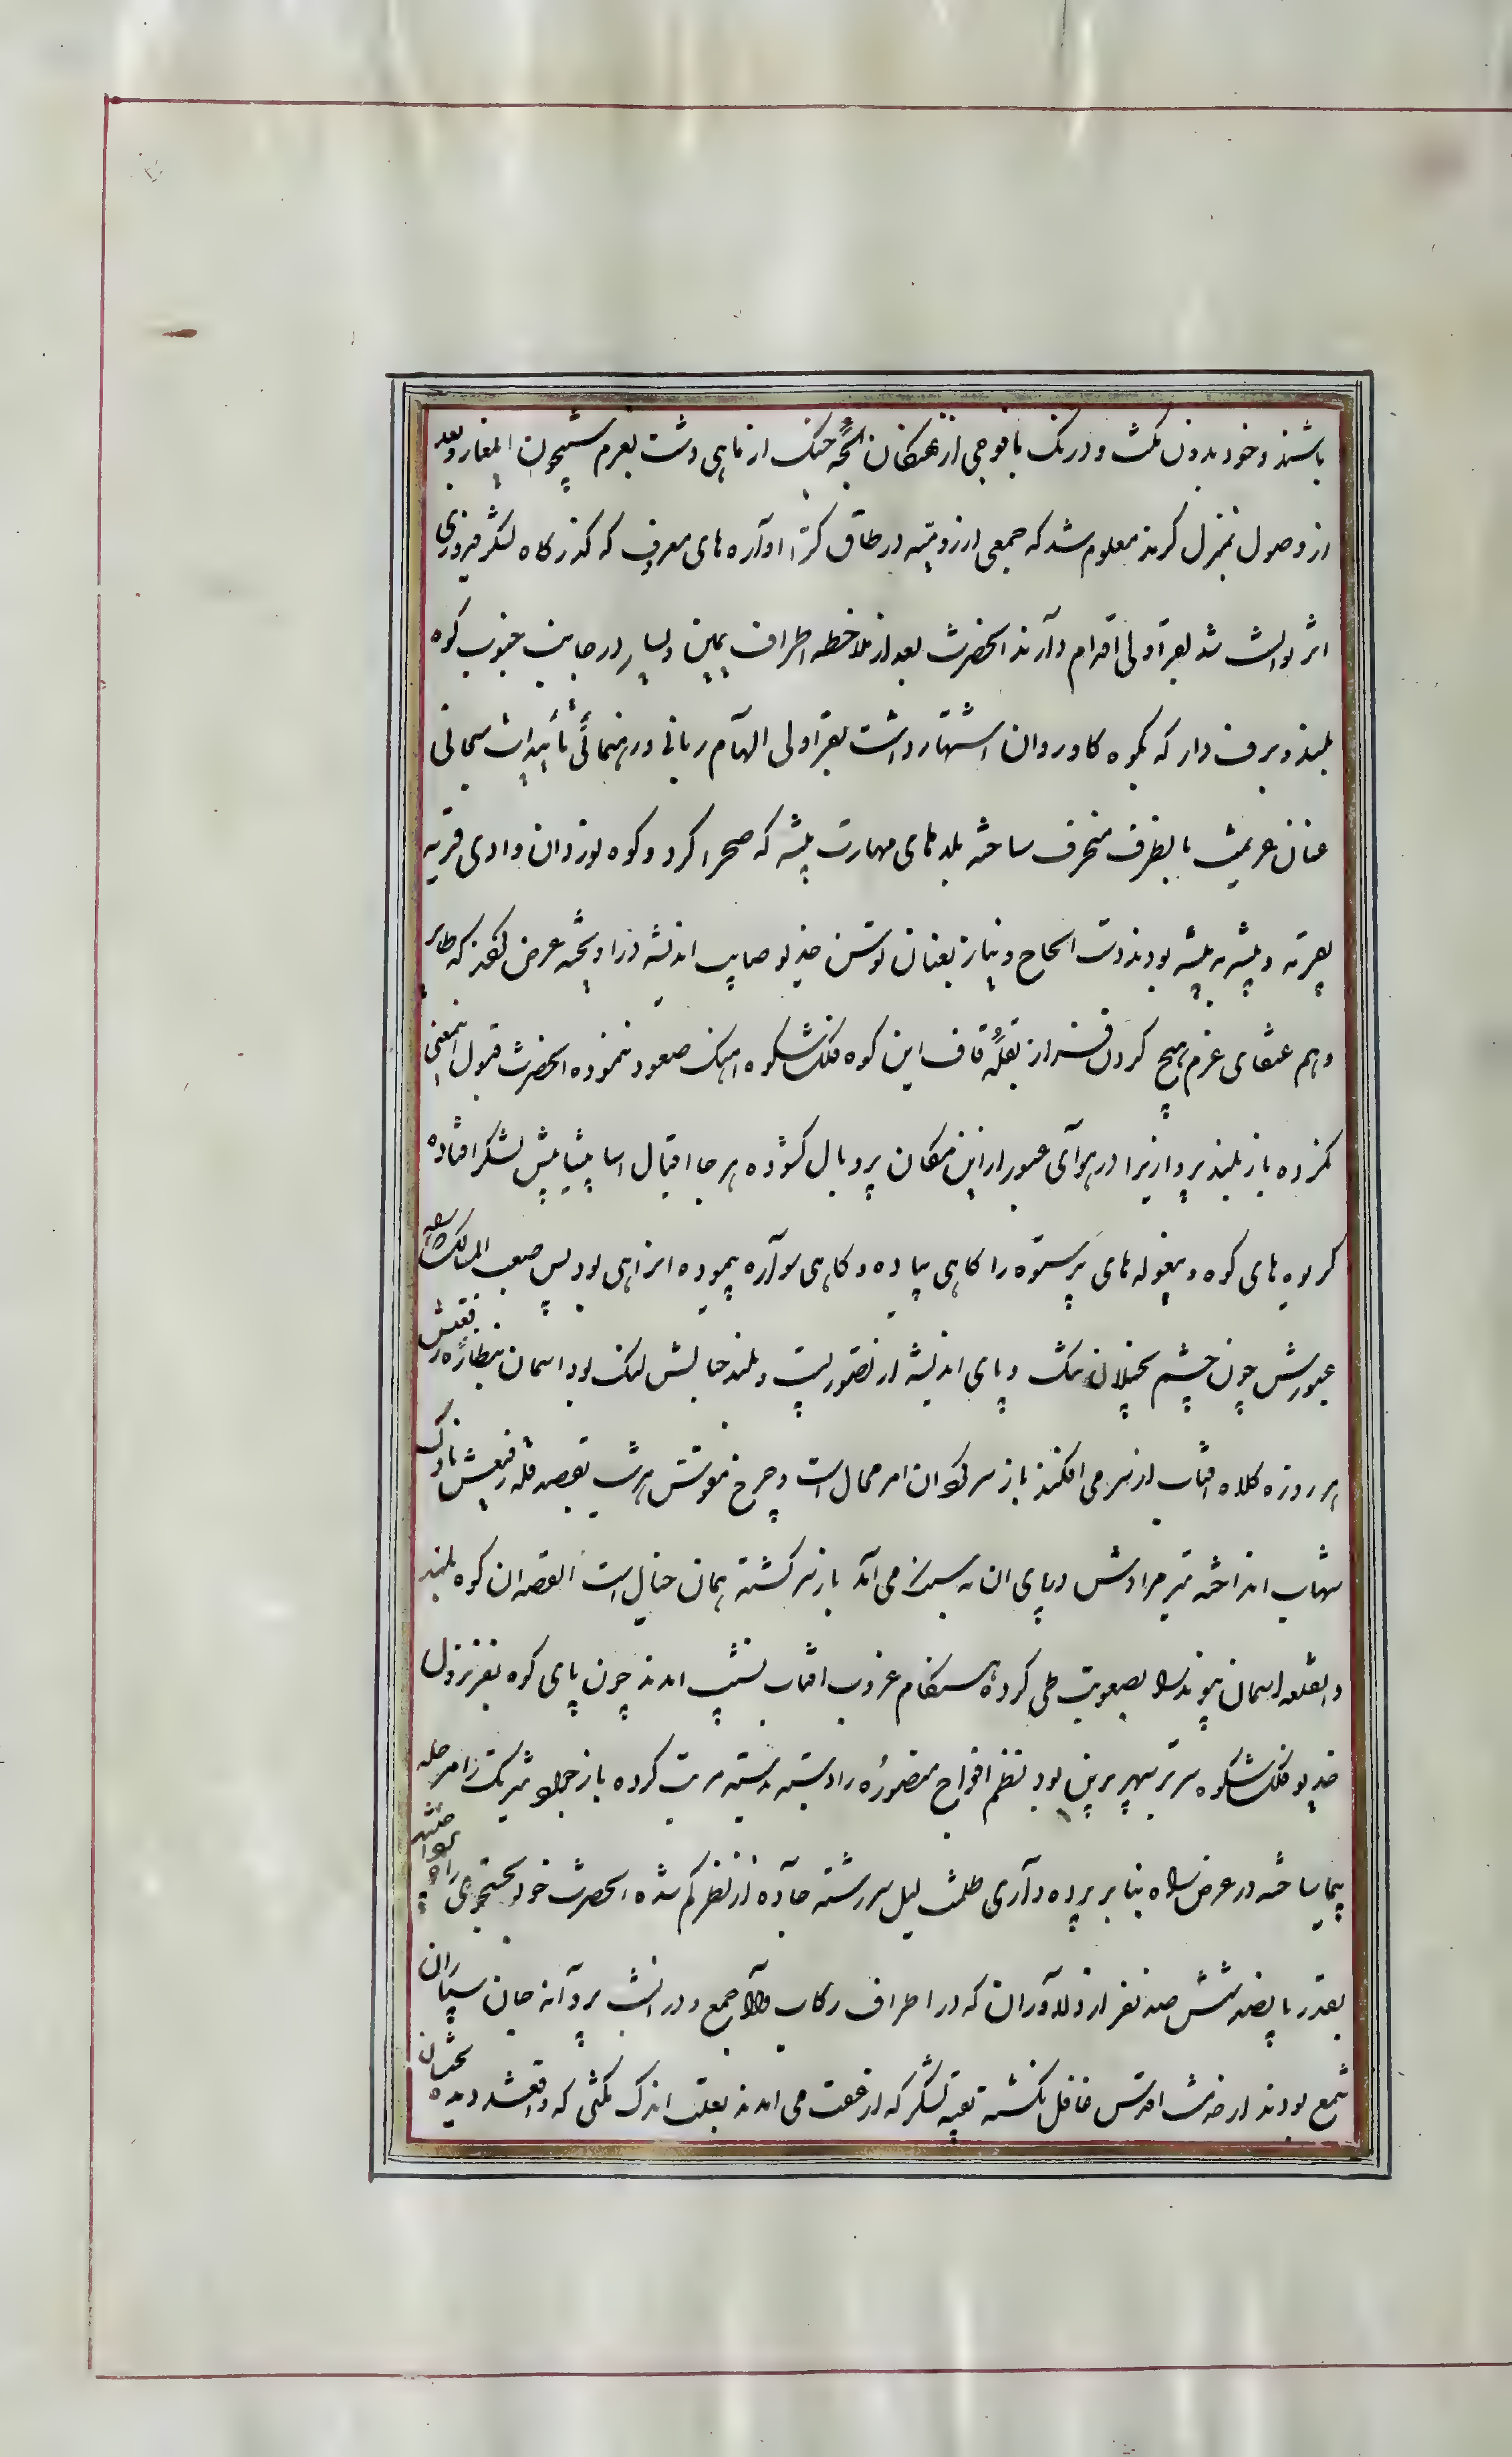 باشند و خود بدون مکث و درنک با فوجی از نهنکان لجّهٔ جنک از ماهی دشت بعزم شبیخون ایلغار و بعد
از وصول بمنزل کرند معلوم شد که جمعی از رومیّه در طاق کرّا و آره های معروف که کذرکاه لشکر فیروزی
اثر توانست شد بقراولی اقدام دارند انحضرت بعد از ملاخطه اطراف یمین و یسار در جانب جنوب کوه
بلند و برف دار که بکوه کاوروان اشتهار داشت بقراولی الهآم ربانی و رهنمائی تأییدات سبحانی
عنان عزیمت بانطرف منحرف ساخته بلدهای مهارت پیشه که صحرا کرد و کوه نوردان وادی قریه
بقریه و پیشه به پیشه بودند دست الحاح و نیاز بعنان توسن خدیو صایب اندیشه درآویخته عرض کردند که طایر
وهم عنقای عزم هیچ کردن فراز بقلّهٔ قاف این کوه فلک شکوه اهنک صعود ننموده انحضرت قبول اینمعنی
نکرده باز بلند پرواز را در هوآی عبور از این مکان پر و بال کشوده هر جا اقبال اسا پیشاپیش لشکر افتاده
کریوه های کوه و بیغوله های پرستوه را کاهی پیاده و کاهی سوآره پیموده انراهی بود بس صعب المسالک
عبورش چون چشم بخیلان تنک و پای اندیشه از تصور پست و بلند خیالش لنک بود اسمان بنظارهٔ رفعتش
هر روزه کلاه افتاب از سر می افکند باز سرکوب ان امر محال است و چرخ مقوس هر شب بقصد قله رفیعش ناوک
شهاب انداخته تیر مرادش در پای ان به سنک می آمد باز سر کشته همان خیال است القصه ان کوه بلند
و القلعه اسمان پیوند را بصعوبت طی کرده هنکام غروب افتاب بنشیب امدند چون پای کوه بفر نزول
خدیو فلک شکوه سرتر سپهر برین بود بنظم افواج منصوره را دسته بدسته مرتب کرده باز جلو شبرنک را مرحله
پیما ساخته در عرض راه بنا بر پرده دآری ظلمت لیل سر رشته جآده از نظر کم شده انحضرت خود بجستجوی راه
بقدر پانصد ششصد نفر از دلاوران که در اطراف رکاب والآ جمع و در انشب پروآنه جان سپاران
شمع بودند از خدمت اقدس غافل نکشته بقیه لشکر که از عقب می امدند بعلت اندک مکثی که واقعشد دیده بختشان